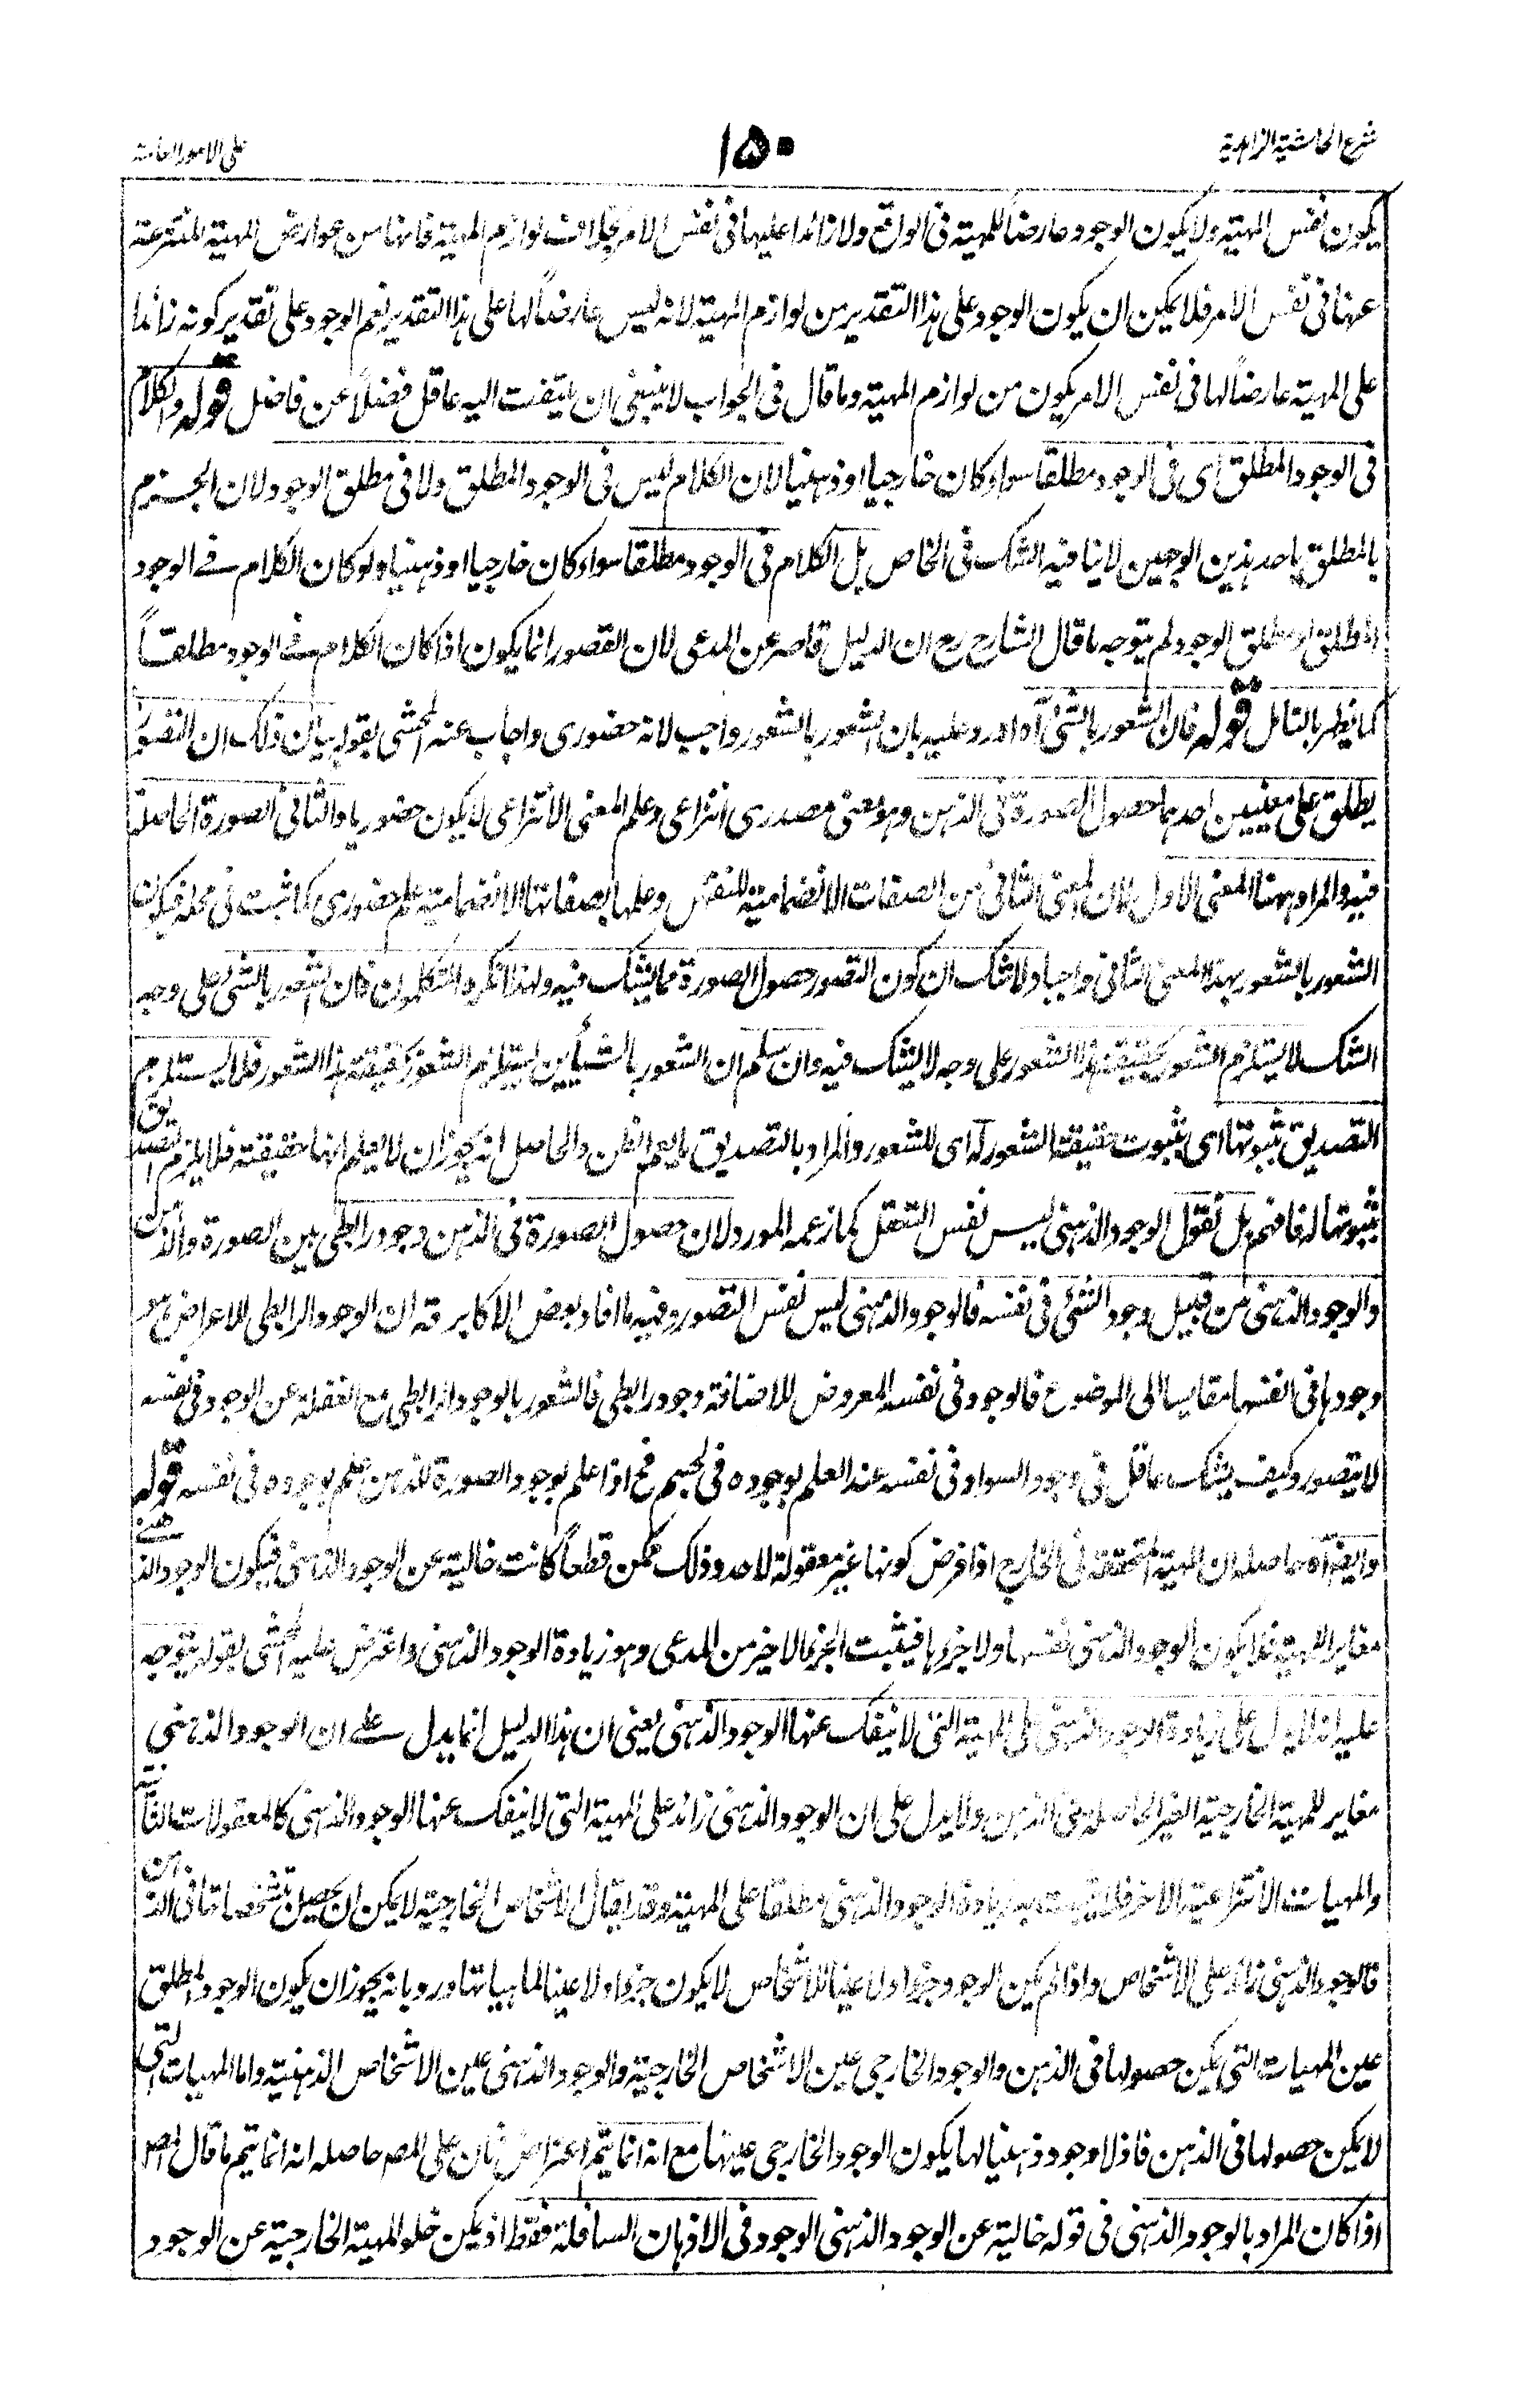 شرح الحاشية الزاهدية
١٥٠
على الامور العامة
يكون نفس المهية ولا يكون الوجود عارضاً للمهية فى الواقع ولا زائدا عليها فى نفس الامر بخلاف لوازم المهية فانها من عوارض المهية المنتزعة
عنها فى نفس الامر فلا يمكن ان يكون الوجود على هذا التقدير من لوازم المهية لانه ليس عارضاً لها على هذا التقدير نعم الوجود على تقدير كونه زائدا
على المهية عارضاً لها فى نفس الامر يكون من لوازم المهية وما قال فى الجواب لا ينبغى ان يلتفت اليه عاقل فضلاً عن فاضل قوله والكلام
فى الوجود المطلق اى فى الوجود مطلقا سواء كان خارجيا او ذهنيا لان الكلام ليس فى الوجود المطلق ولا فى مطلق الوجود لان الجزم
بالمطلق باحد هذين الوجهين لا ينافيه الشك فى الخاص بل الكلام فى الوجود مطلقا سواء كان خارجيا او ذهنيا ولو كان الكلام فے الوجود
المطلق او مطلق الوجود لم يتوجه ما قال الشارح رح ان الدليل قاصر عن المدعى لان القصور انما يكون اذا كان الكلام فے الوجود مطلقاً
كما يظهر بالتامل قوله فان الشعور بالشئ آه اورد عليه بان الشعور بالشعور واجب لانه حضورى واجاب عنه المحشى بقوله بيان ذلك ان التصور
يطلق على معنيين احدهما حصول الصورة فى الذهن وهو معنى مصدرى انتزاعى وعلم المعنى الانتزاعى لا يكون حضوريا والثانى الصورة الحاصلة
فيه والمراد ههنا المعنى الاول لان المعنى الثانى من الصفات الانضمامية للنفس وعلمها بصفاتها الانضمامية علم حضورى كما ثبت فى محله فيكون
الشعور بالشعور بهذا المعنى الثانى واجبا ولا شك ان كون التصور حصول الصورة مما يشك فيه ولهذا انكره المتكلمون فان الشعور بالشئ على وجه
الشك لا يستلزم الشعور بحقيقة هذا الشعور على وجه لا يشك فيه وان سلم ان الشعور بالشيأين يستلزم الشعور بحقيقة هذا الشعور فلا يستلزم
التصديق بثبوتها اى بثبوت حقيقة الشعور له اى للشعور والمراد بالتصديق ما يعم الظن والحاصل انه يجوز ان لا يعلم انها حقيقته فلا يلزم التصديق
بثبوتها له فافهم بل نقول الوجود الذهنى ليس نفس التعقل كما زعمه المورد لان حصول الصورة فى الذهن وجود رابطى بين الصورة والذهن
والوجود الذهنى من قبيل وجود الشئ فى نفسه فالوجود الذهنى ليس نفس التصور وفيه ما افاد بعض الاكابر قه ان الوجود الرابطى للاعراض هو
وجودها فى انفسها مقايسا الى الموضوع فالوجود فى نفسه المعروض للاضافة وجود رابطى فالشعور بالوجود الرابطى مع الغفلة عن الوجود فى نفسه
لا يتصور وكيف يشك عاقل فى وجود السواد فى نفسه عند العلم بوجوده فى الجسم فح اذا علم بوجود الصورة للذهن علم بوجوده فى نفسه قوله
وايضا آه حاصله ان المهية المتحققة فى الخارج اذا فرض كونها غير معقولة لاحد وذلك ممكن قطعاً كانت خالية عن الوجود الذهنى فيكون الوجود الذهنے
مغاير المهية فلا يكون الوجود الذهنى نفسها ولا جزءها فيثبت الجزء الاخير من المدعى وهو زيادة الوجود الذهنى واعترض عليه المحشى بقوله يتوجه
عليه انه لا يدل على زيادة الوجود الذهنى على المهية التى لا ينفك عنها الوجود الذهنى يعنى ان هذا الدليل انما يدل علے ان الوجود الذهنى
مغاير للمهية الخارجية الغير الحاصلة فى الذهن ولا يدل على ان الوجود الذهنى زائد على المهية التى لا ينفك عنها الوجود الذهنى كالمعقولات الثانية
والمهيات الانتزاعية الاخر فلا يثبت به زيادة الوجود الذهنى مطلقا على المهية وقد يقال الاشخاص الخارجية لا يمكن ان يحصل بتشخصاتها فى الذهن
فالوجود الذهنى زائد على الاشخاص واذا لم يكن الوجود جزءا ولا عينا للاشخاص لا يكون جزءا ولا عينا لماهياتها ورد بانه يجوز ان يكون الوجود المطلق
عين المهيات التى يمكن حصولها فى الذهن والوجود الخارجى عين الاشخاص الخارجية والوجود الذهنى عين الاشخاص الذهنية واما المهيات التى
لا يمكن حصولها فى الذهن فاذ لا وجود ذهنيا لها يكون الوجود الخارجى عينها مع انه انما يتم اعتراض ثان على المصـ حاصله انه انما يتم ما قال المصـ
اذا كان المراد بالوجود الذهنى فى قوله خالية عن الوجود الذهنى الوجود فى الاذهان السافلة فقط اذ يمكن خلو المهية الخارجية عن الوجود